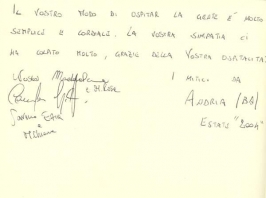 IL VOSTRO MODO DI OSPITAR LA GENTE È MOLTO
SEMPLICE E CORDIALE. LA VOSTRA SIMPATIA CI
HA COLPITO MOLTO, GRAZIE DELLA VOSTRA OSPITALITÀ
I MITICI DA
E M. ROSA
ANDRIA (BA)
ESTATE "2004"